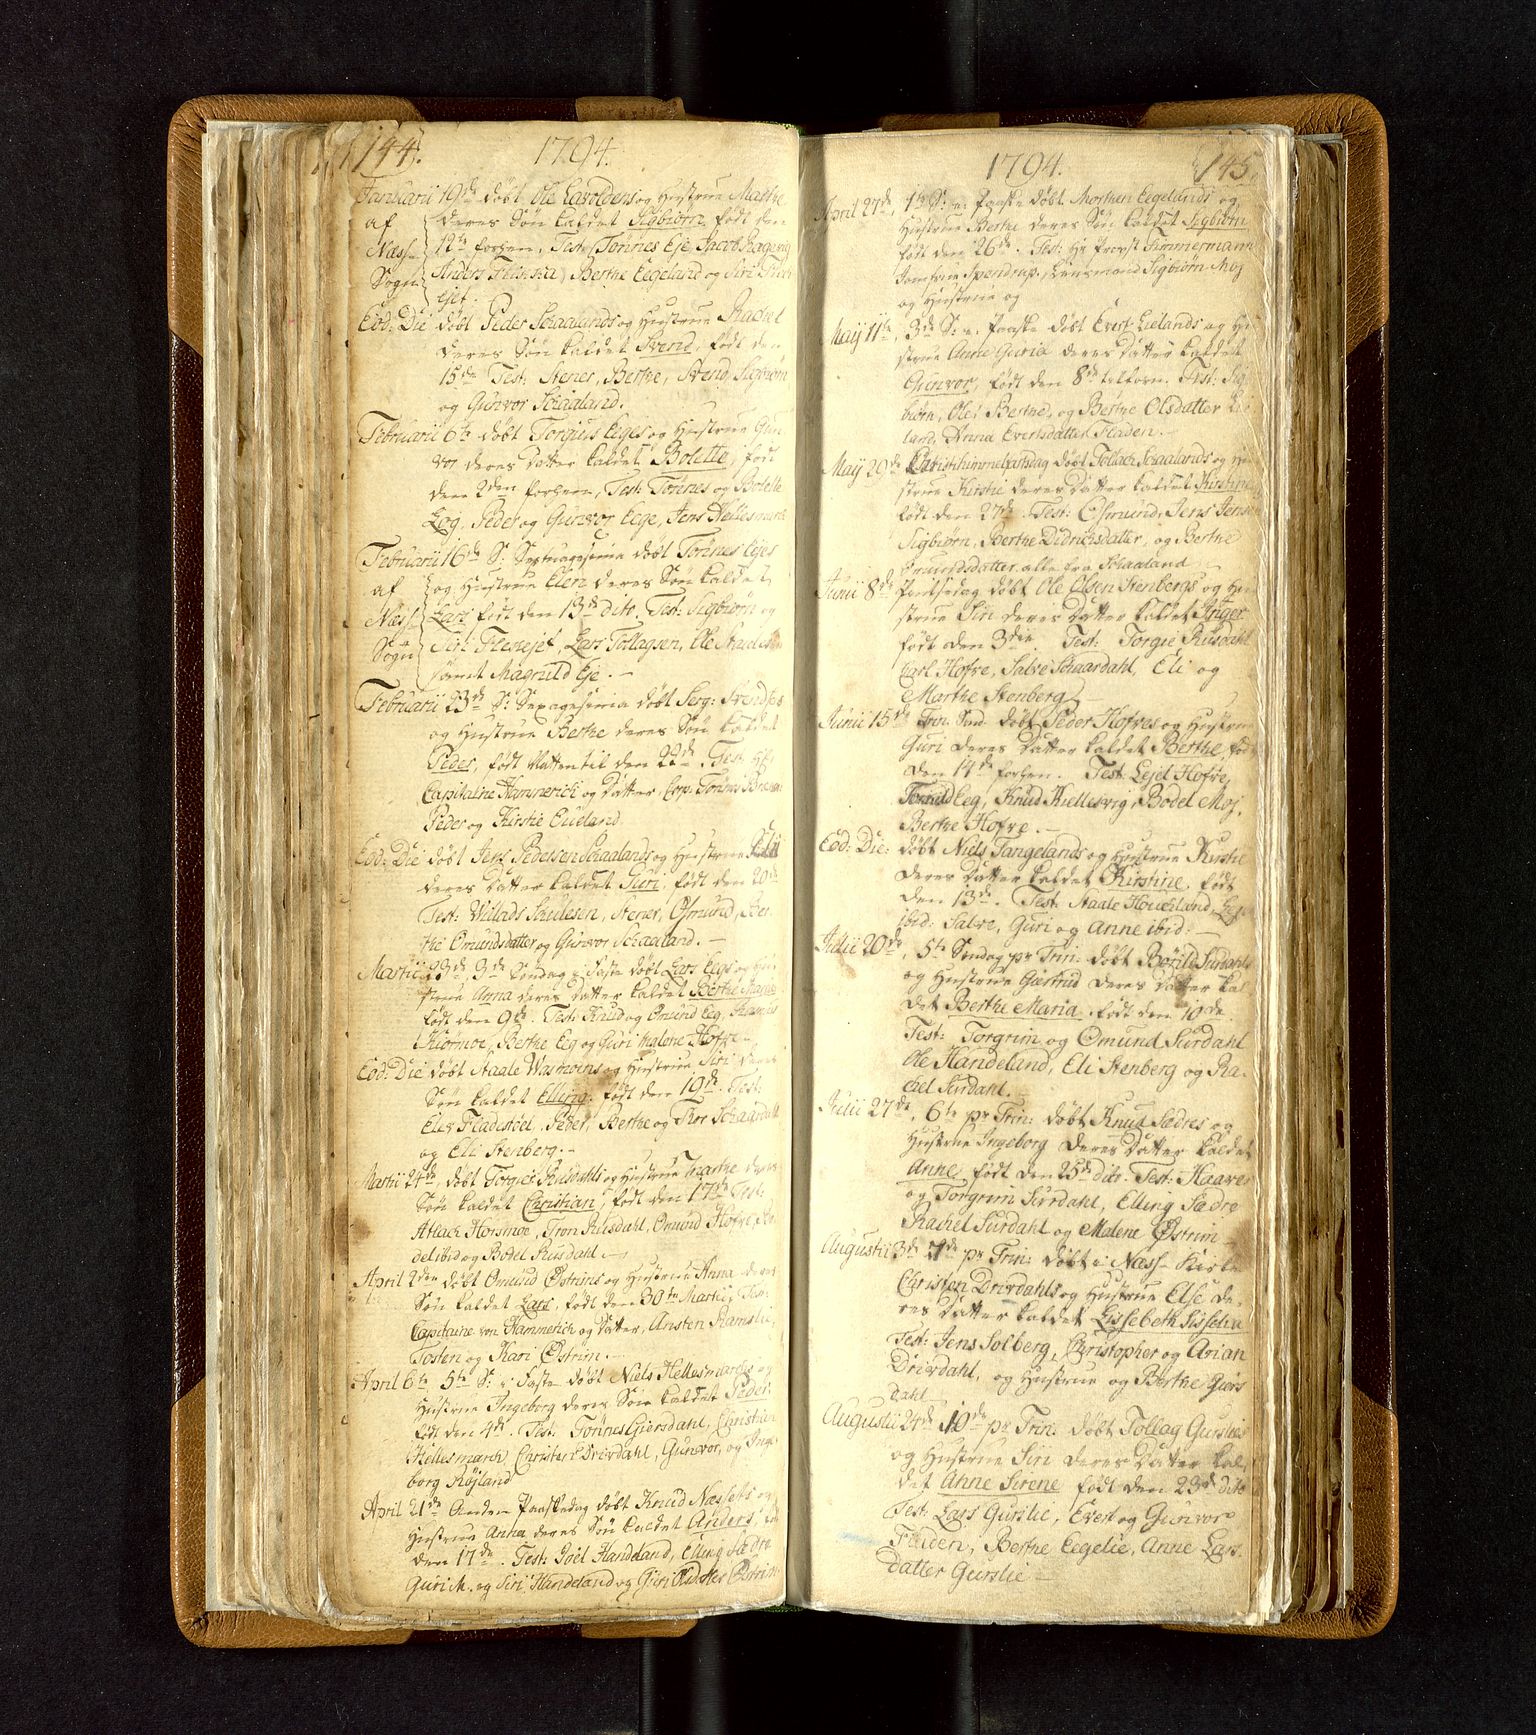 144. 1794.
Januarii 19de døbt Ole Lavoldens og Hustrue Marthe
af deres Søn kaldet Sigbiørn, født den
Næss 12te forhen, Test: Tønnes Eje, Jacob
Sogn Anders, Berthe Eegeland og Siri
ejef.
Eod: Die døbt Peder Schaalands og Hustrue Rachel
deres Søn kaldet Svend, født den
15de Test: Stener, Berthe, Svend, Sigbiørn
og Gunvor Schaaland.
Februarii 6te døbt Torgius Eeges og Hustrue Gun
vor deres Datter kaldet Bolette, født
den 2den forhen, Test: Tønnes og Bolette
Log, Peder og Gunvor Eege, Jens Hellesmark
Februarii 16de S: Septuagesima døbt Tønnes Ejes
af og Hustrue Elen deres Søn kaldet
Næss Lars født den 13de dito. Test: Sigbiørn og
Sogn Siri, Lars Tollagsen, Ole
samt Magnild Eje.-
Februarii 23de S: Sexagesima døbt Serg: Svend
og Hustrue Berthe deres Søn kaldet
Peder, født Natten til den 22de. Test: Hr
Capitaine Hammerich og Datter, Corp: Tønnes
Peder og Kirstie Eiieland
Eod: Die døbt Jens Pedersen Schaalands og Hustrue
deres Datter kaldet Guri, født den 20de
Test: Willads Saulesen, Stener, Osmund, Ber-
the Omundsdatter og Gunvor Schaaland.-
Martii 23de 3de Søndag i Faste døbt Lars Eegs og Hu
strue Anna deres Datter kaldet Berthe Maria
født den 9de. Test: Knud og Omund Eeg,
Kiørmoe, Berthe Eeg og Guri Malene Hofre.-
Eod: Die døbt Staale Wasmoens og Hustrue Siri deres
Søn kaldet Elling, født den 19de. Test:
Elev Fladstøel, Peder, Berthe og Thor Schaardahl
og Eli Stenberg.-
Martii 24de, døbt Torgiei Rusdahls og Hustrue Marthe deres
Søn kaldet Christian, født den 17de Test:
Atlach Horsmoe, Tron Rusdahl, Omund Hofre,
del ibid og Bodel Rusdahl.-
April 2den døbt Omund Østrims og Hustrue Anna deres
Søn kaldet Lars, født den 30te Martii, Test:
Capitaine von Hammerich og Datter, Ansten Ramslie,
Tosten og Kari Østrim.-
April 6te 5te S: i Faste døbt Niels Hellesmarchs og
Hustrue Ingeborg deres Søn kaldet Peder.
født den 4de. Test: Tønnes Giersdahl, Christian
Hellesmarck, Christen Drivdahl, Gunvor, og Inge
borg Røjland
April 21de Anden Paaskedag døbt Knud Næssets og
Hustrue Anna deres Søn kaldet Anders,
den 17de. Test: Joel Handeland, Elling Sædre
Guri M. og Siri Handeland og Guri Østrim
1794. 145.
April 27de, 1te S: e: Paaske døbt Morthen Eegelands og
Hustrue Berthe deres Søn kaldet Sigbiørn
født den 26de. Test: Hr Provst Timmermann
Jomfrue Spendrup, Lensmand Sigbiørn Moj
og Hustrue og
Maij 11te, 3de S: e: Paaske døbt Evert Lielands og Hu
strue Anne Guria deres Datter kaldet
Gunvor, født den 8de tilforn. Test: Sig
biørn, Ole, Berthe, og Berthe Olsdatter Lie
land, Anna Evertsdatter Fladen.-
Maij 29de Christi himmelfartsdag døbt Tollach Schaalands og Hu
strue Kirstie deres Datter kaldet Kirstine
født den 27de. Test: Osmund, Jens Jens
Sigbiørn, Berthe Didrichsdatter, og Berthe
Omundsdatter alle fra Schaaland
Junii 8de Pintsedag døbt Ole Olsen Stenbergs og Hu
strue Siri deres Datter kaldet Anger
født den 3die. Test: Torgie Rusdahl
Carl Hofre, Salve Schaardahl, Eli og
Marthe Stenberg
Junii 15de Trin. Sønd. døbt Peder Hofres og Hustrue
Guri deres Datter kaldet Berthe, født
den 14de forhen. Test: Lejel Hofre,
Eeg, Knud Kiellesvig, Bodel Moj,
Berthe Hofre.-
Eod: Die: døbt Niels Tangelands og Hustrue Kirstie
deres Datter kaldet Kirstine, født
den 13de. Test: Staale Houeland,
ibid: Salve, Guri og Anne ibid:-
Julii 20de, 5te Søndag pr Trin: døbt Børild Surdahls
og Hustrue Giertrud deres Datter kal
det Berthe Maria, født den 19de.
Test: Torgrim og Omund Surdahl
Ole Handeland, Eli Stenberg og Ra-
chel Surdahl.
Julii 27de, 6te pr Trin: døbt Knud Sædres og
Hustrue Ingeborg deres Datter kaldet
Anne, født den 25de dito. Test: Haaver
og Torgrim Surdahl, Elling Sædre
Rachel Surdahl og Malene Østrim-
Augustii 3de 7de pr Trin: døbt i Næss-Kirke
Christen Drivdahls og Hustrue Else de-
res Datter kaldet Lissebeth Sisselia
Test: Jens Solberg, Christopher og Arian
Drivdahl, og Hustrue og Berthe Giers
dahl
Augustii 24de 10de pr Trin: døbt Tollag Gurslies
og Hustrue Siri deres Datter kal-
det Anne Sirene født den 23de dito
Test: Lars Gurslie, Evert og Gunvor
Fladen, Berthe Eegelie, Anne Lars-
datter Gurslie-